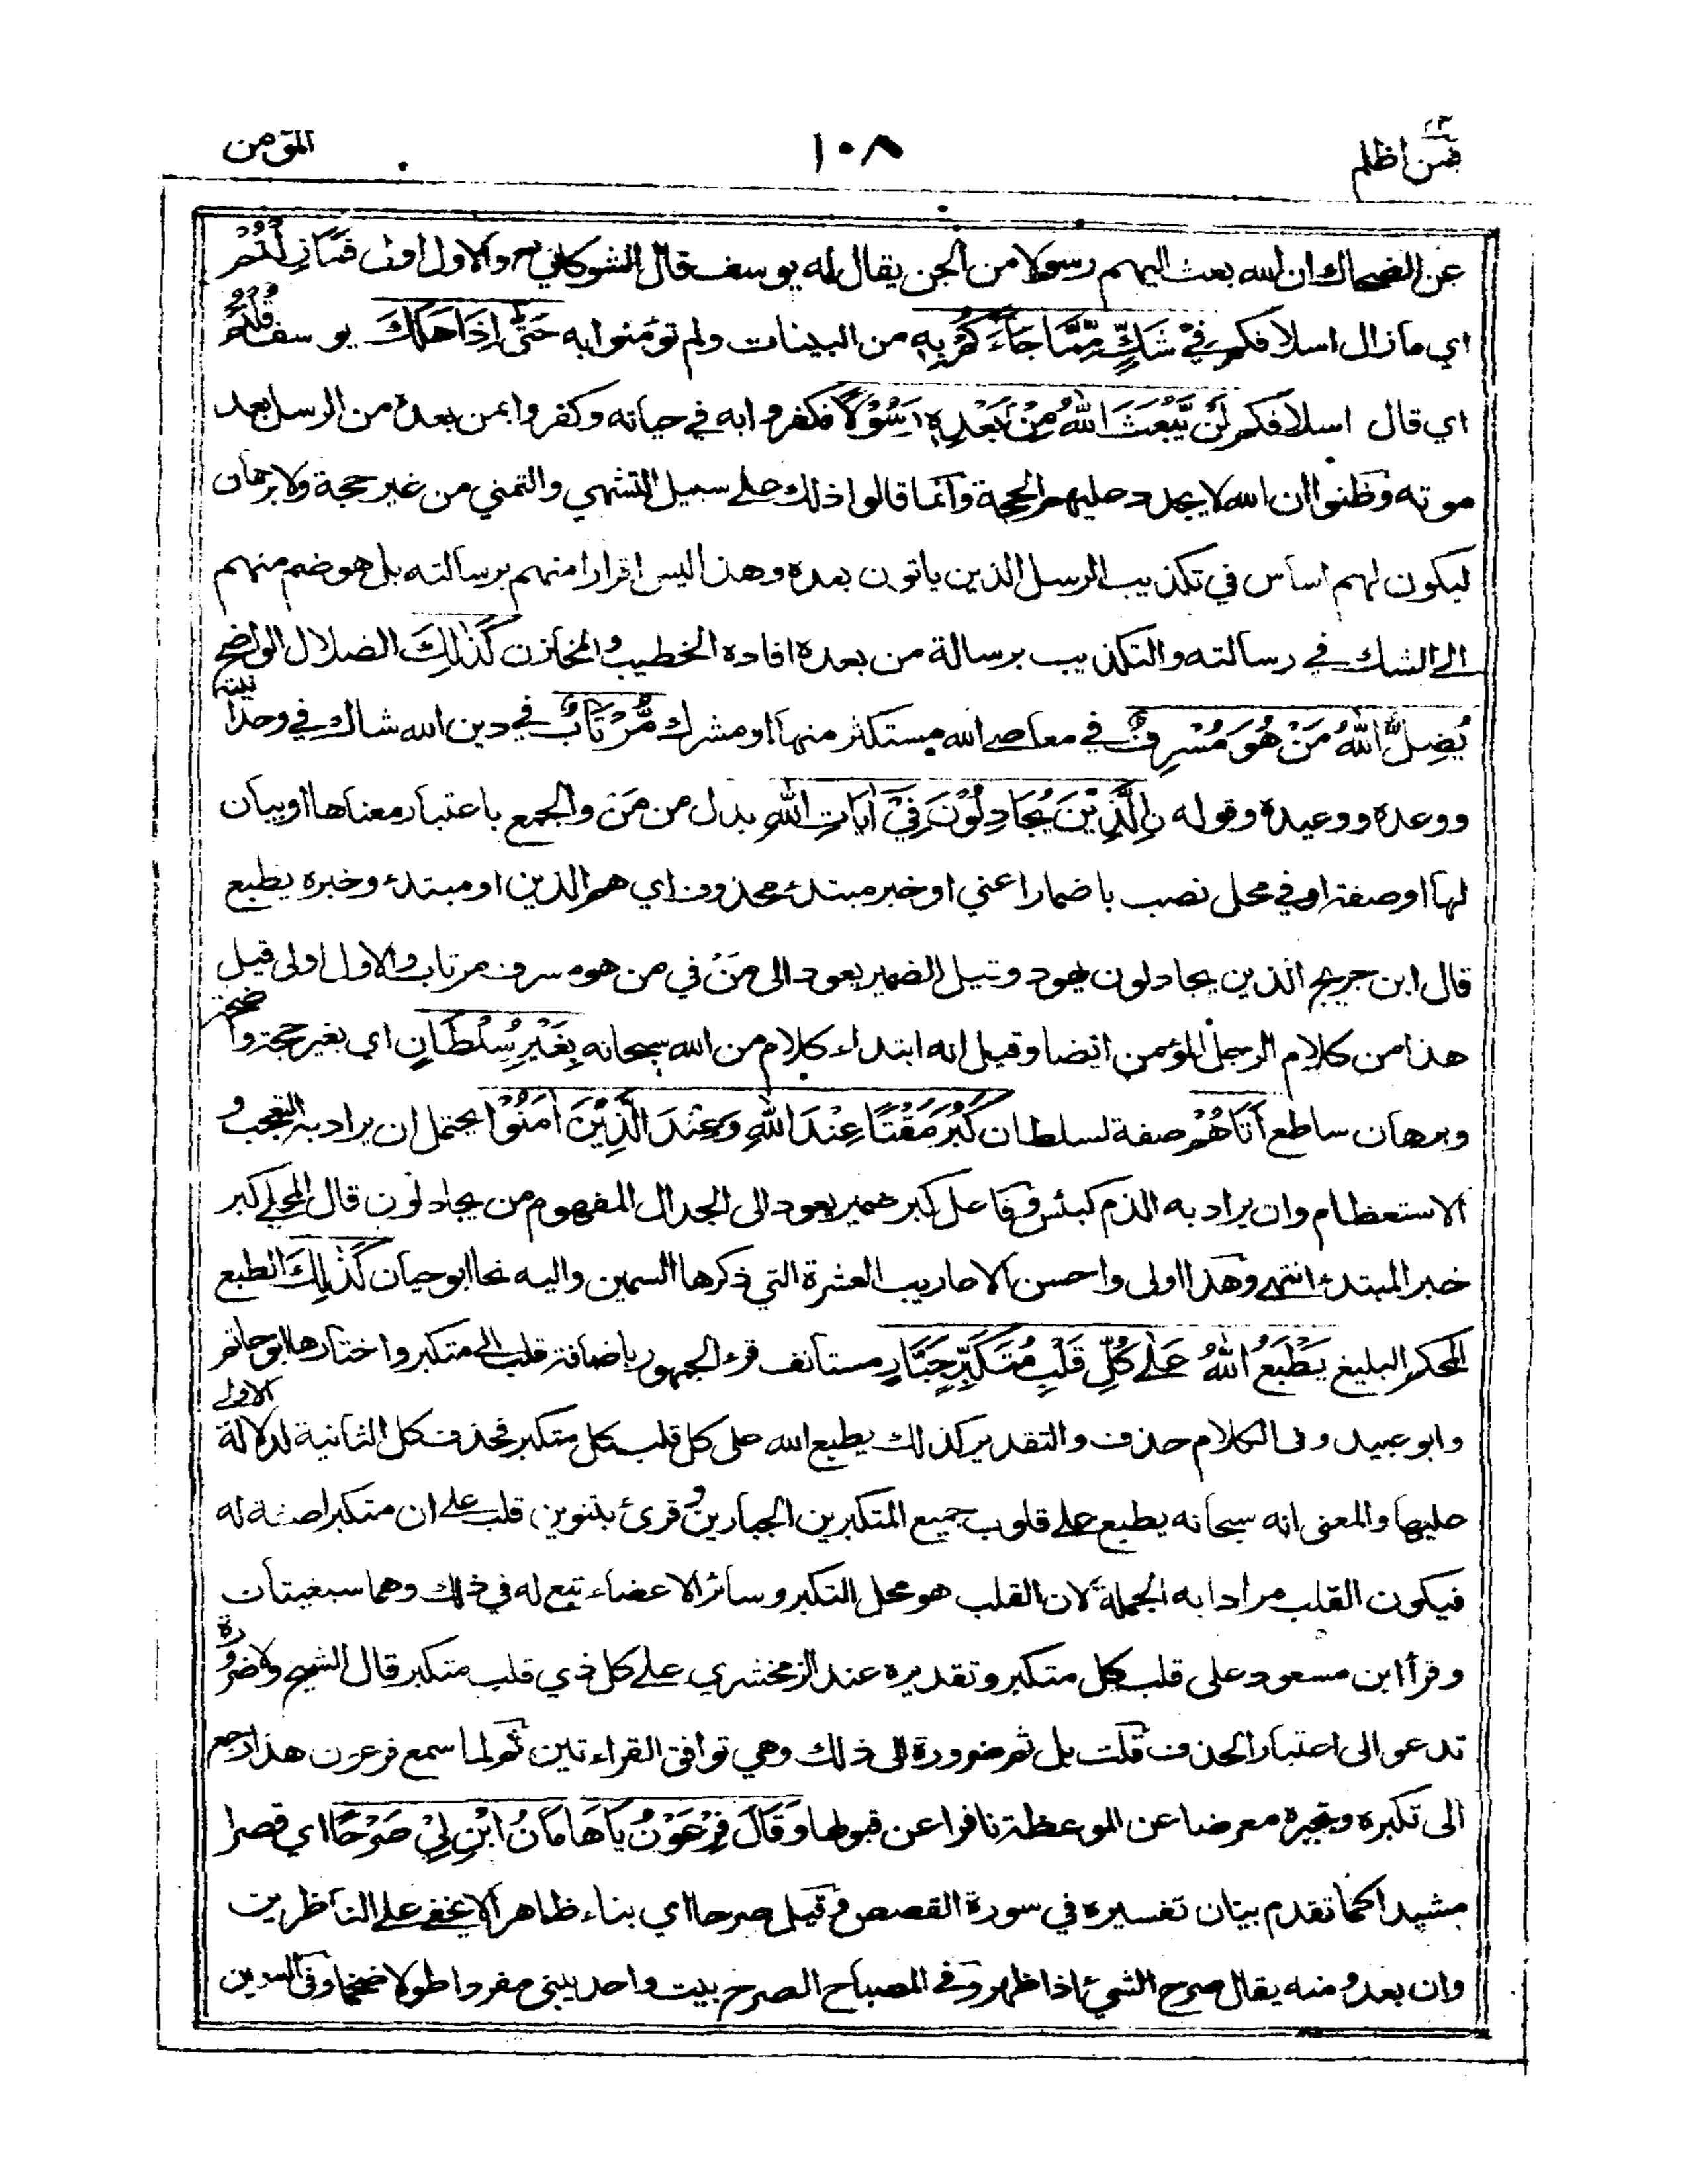 فمن اظلم ٢٤
١٠٨
المؤمن
عن الضحاك ان الله بعث اليهم رسولا من الجن يقال له يوسف قال الشوكاني رح والاول اولى فَمَا زِلْتُمْ
اي ما زال اسلافكم فِيْ شَكٍّ مِّمَّا جَاءَكُمْ بِهٖ من البينات ولم تؤمنوا به حَتّٰى اِذَا هَلَكَ يوسف قُلْتُمْ
اي قال اسلافكم لَنْ يَّبْعَثَ اللهُ مِنْ بَعْدِهٖ رَسُوْلًا فكفروا به في حياته وكفروا بمن بعده من الرسل بعد
موته وظنوا ان الله لا يجدد عليهم الحجة وانما قالوا ذلك على سبيل التشهي والتمني من غير حجة ولا برهان
ليكون لهم اساس في تكذيب الرسل الذين ياتون بعده وهذا ليس اقرارا منهم برسالته بل هو ضم منهم
الى الشك في رسالته والتكذيب برسالة من بعده افاده الخطيب والخازن كَذٰلِكَ الضلال الواضح
يُضِلُّ اللهُ مَنْ هُوَ مُسْرِفٌ في معاصي الله مستكثر منها او مشرك مُّرْتَابٌ في دين الله شاك في وحدانيته
ووعده ووعيده وقوله نِ الَّذِيْنَ يُجَادِلُوْنَ فِيْ اٰيَاتِ اللهِ بدل من مَن والجمع باعتبار معناها او بيان
لها او صفة او في محل نصب باضمار اعني او خبر مبتدء محذوف اي هم الذين او مبتدء وخبره يطبع
قال ابن جريج الذين يجادلون يهود وقيل الضمير يعود الى مَنْ في من هو مسرف مرتاب والاول اولى قيل
هذا من كلام الرجل المؤمن ايضا وقيل انه ابتداء كلام من الله سبحانه بِغَيْرِ سُلْطَانٍ اي بغير حجة واضحة
وبرهان ساطع اَتَاهُمْ صفة لسلطان كَبُرَ مَقْتًا عِنْدَ اللهِ وَعِنْدَ الَّذِيْنَ اٰمَنُوْا يحتمل ان يراد به التعجب و
الاستعظام وان يراد به الذم كبئس وفاعل كبر ضمير يعود الى الجدال المفهوم من يجادلون قال المحلي كبر
خبر المبتدء انتهى وهذا اولى واحسن الاعاريب العشرة التي ذكرها السمين واليه نحا ابو حيان كَذٰلِكَ الطبع
المحكم البليغ يَطْبَعُ اللهُ عَلٰى كُلِّ قَلْبِ مُتَكَبِّرٍ جَبَّارٍ مستانف قرء الجمهور باضافة قلب الى متكبر واختارها ابو حاتم
وابو عبيد وفى الكلام حذف والتقدير كذلك يطبع الله على كل قلب كل متكبر فحذف كل الثانية لدلالة الاولى
عليها والمعنى انه سبحانه يطبع على قلوب جميع المتكبرين الجبارين وقرئ بتنوين قلب على ان متكبرا صفة له
فيكون القلب مرادا به الجملة لان القلب هو محل التكبر وسائر الاعضاء تبع له في ذلك وهما سبعيتان
وقرأ ابن مسعود على قلب كل متكبر وتقديره عند الزمخشري على كل ذي قلب متكبر قال الشيخ ولا ضرورة
تدعو الى اعتبار الحذف قلت بل ثم ضرورة الى ذلك وهي توافق القراءتين ثم لما سمع فرعون هذا رجع
الى تكبره وتجبره معرضا عن الموعظة نافرا عن قبولها وَقَالَ فِرْعَوْنُ يَا هَامَانُ ابْنِ لِيْ صَرْحًا اي قصرا
مشيدا كما تقدم بيان تفسيره في سورة القصص وقيل صرحا اي بناء ظاهرا لا يخفى على الناظرين
وان بعد ومنه يقال صرح الشيء اذا ظهر وفي المصباح الصرح بيت واحد يبنى مفردا طولا ضخما وفى السمين